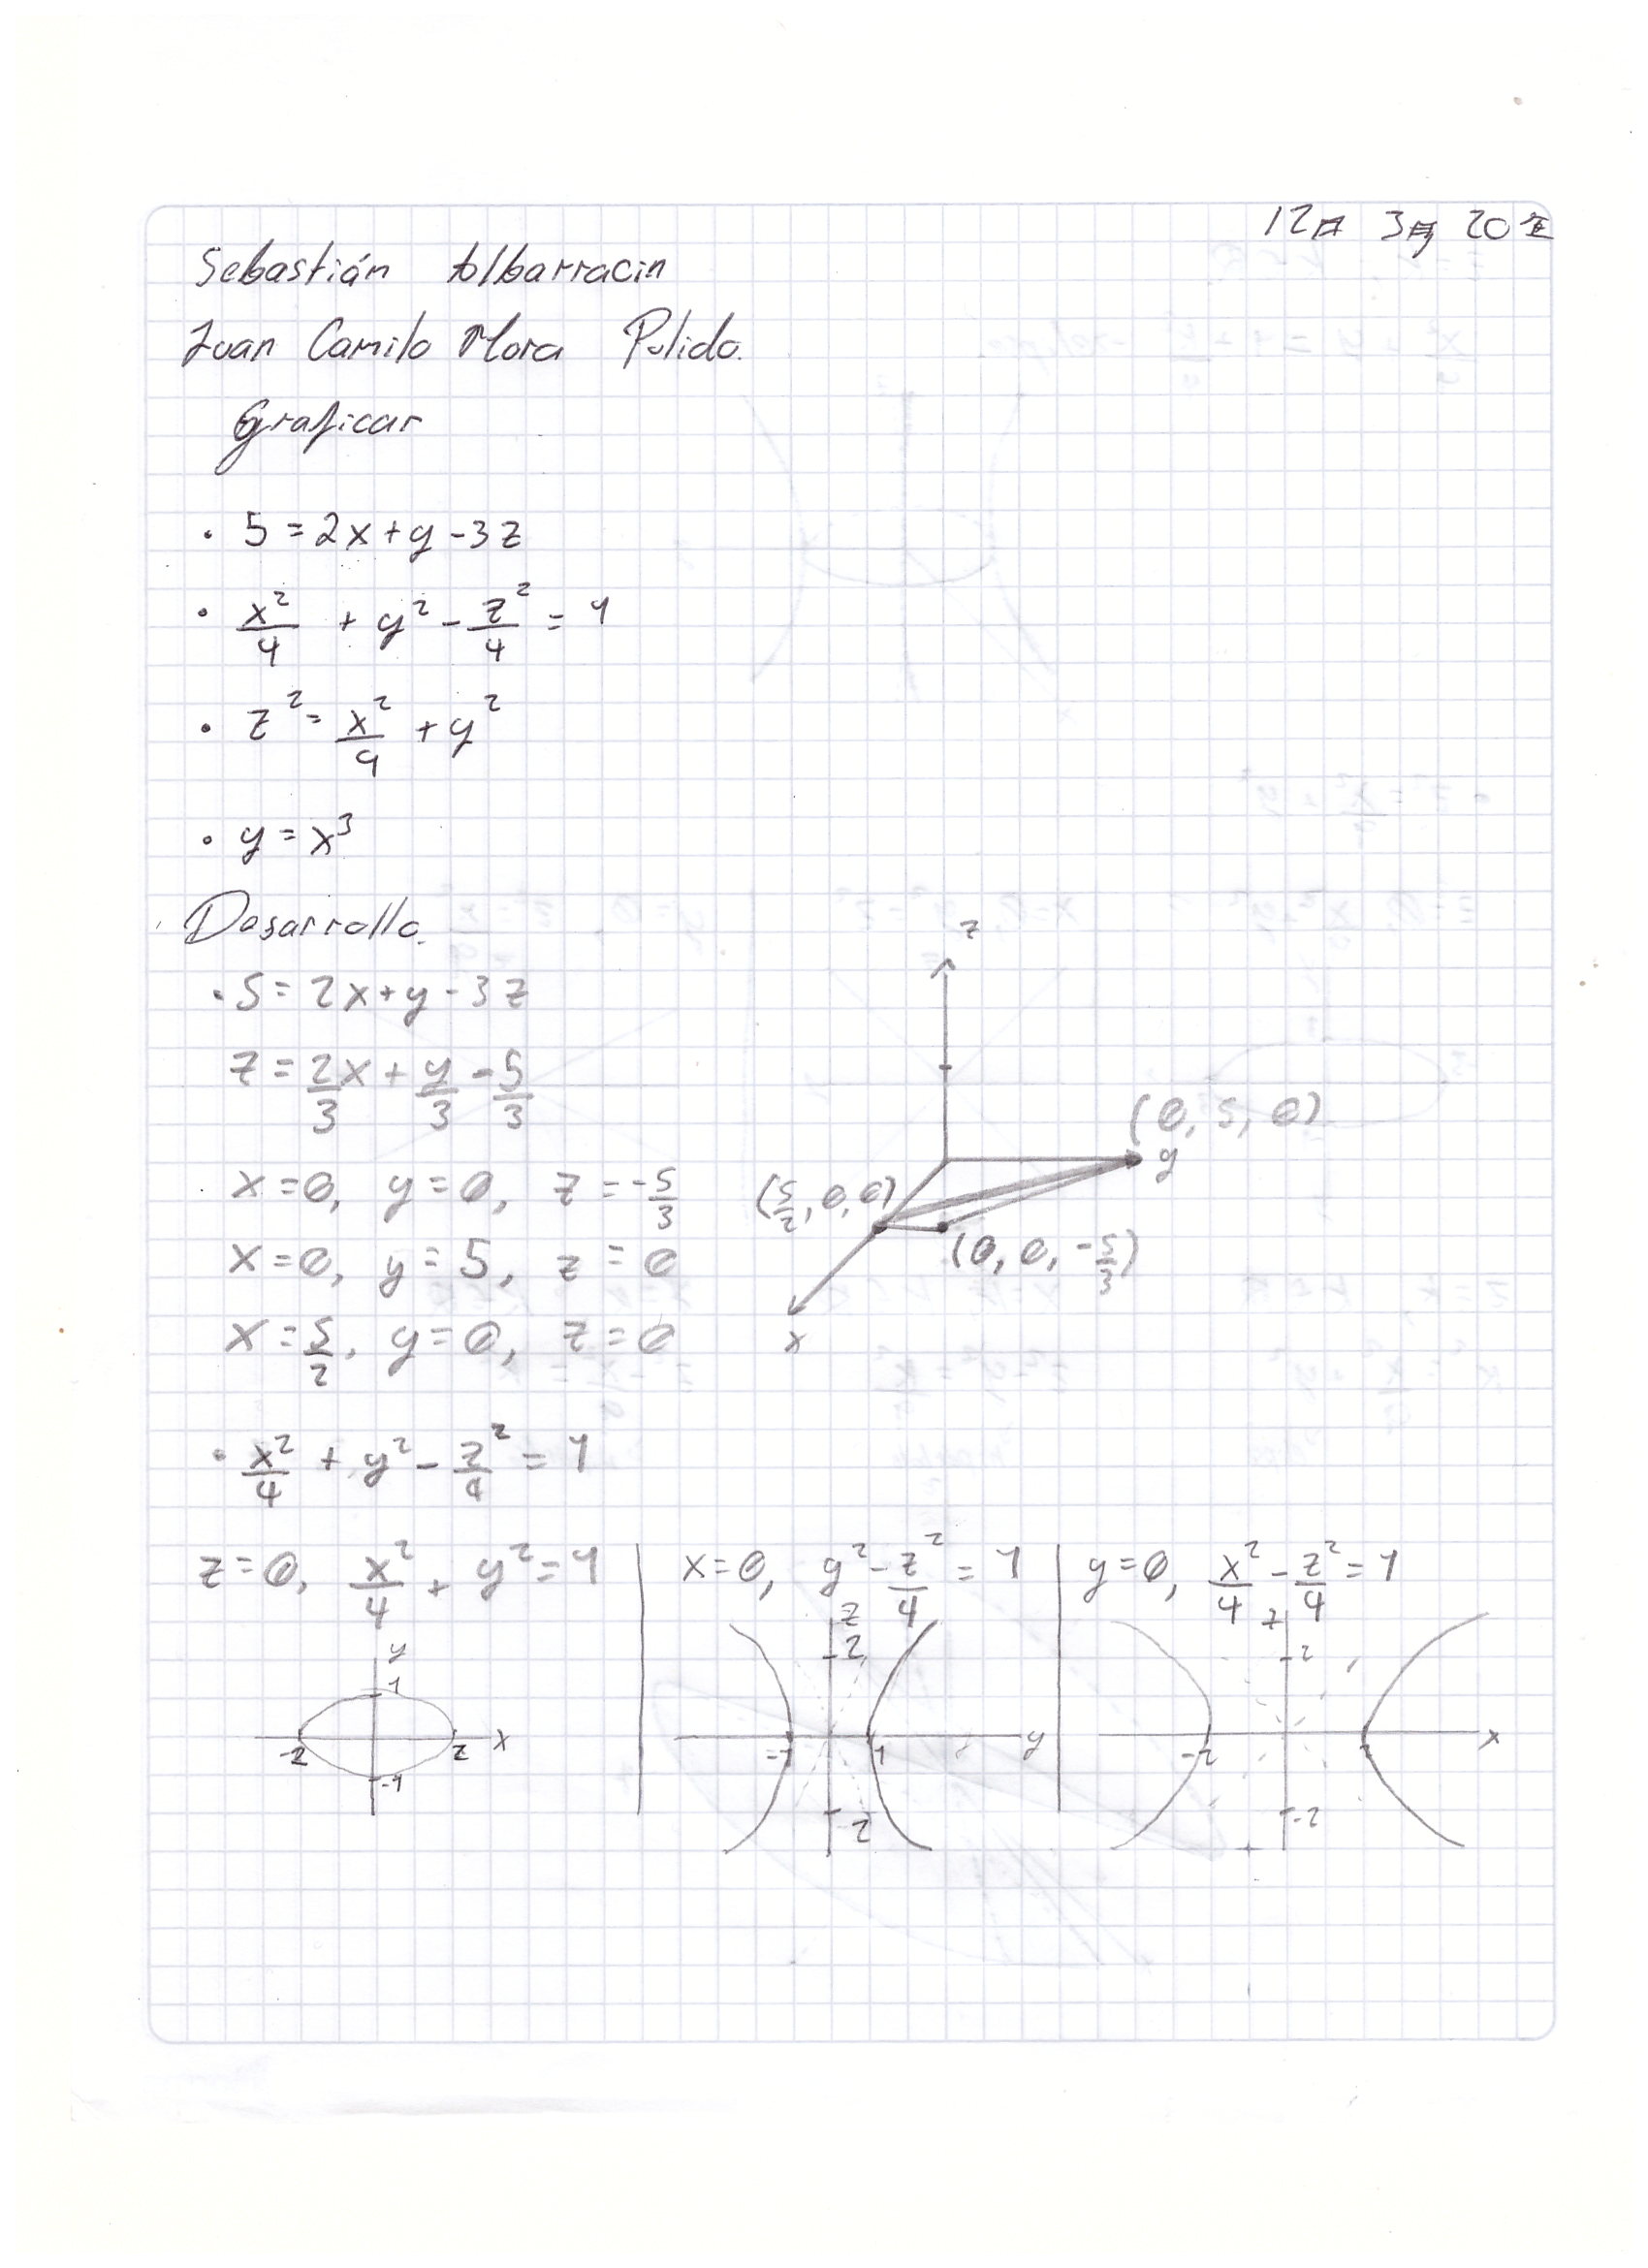 12 3 20
Sebastián Albarracin
Juan Camilo Mora Pulido.
Graficar
• 5 = 2x + y - 3z
• x²/4 + y² - z²/4 = 1
• z² = x²/9 + y²
• y = x³
Desarrollo.
• 5 = 2x + y - 3z
z = 2/3 x + y/3 - 5/3
x = 0, y = 0, z = -5/3
x = 0, y = 5, z = 0
x = 5/2, y = 0, z = 0
z
(0, 5, 0)
y
(5/2, 0, 0)
(0, 0, -5/3)
x
• x²/4 + y² - z²/4 = 1
z = 0, x²/4 + y² = 1
y
1
-2 2 x
-1
x = 0, y² - z²/4 = 1
z
2
-1 1 y
-2
y = 0, x²/4 - z²/4 = 1
z
2
-2 x
-2